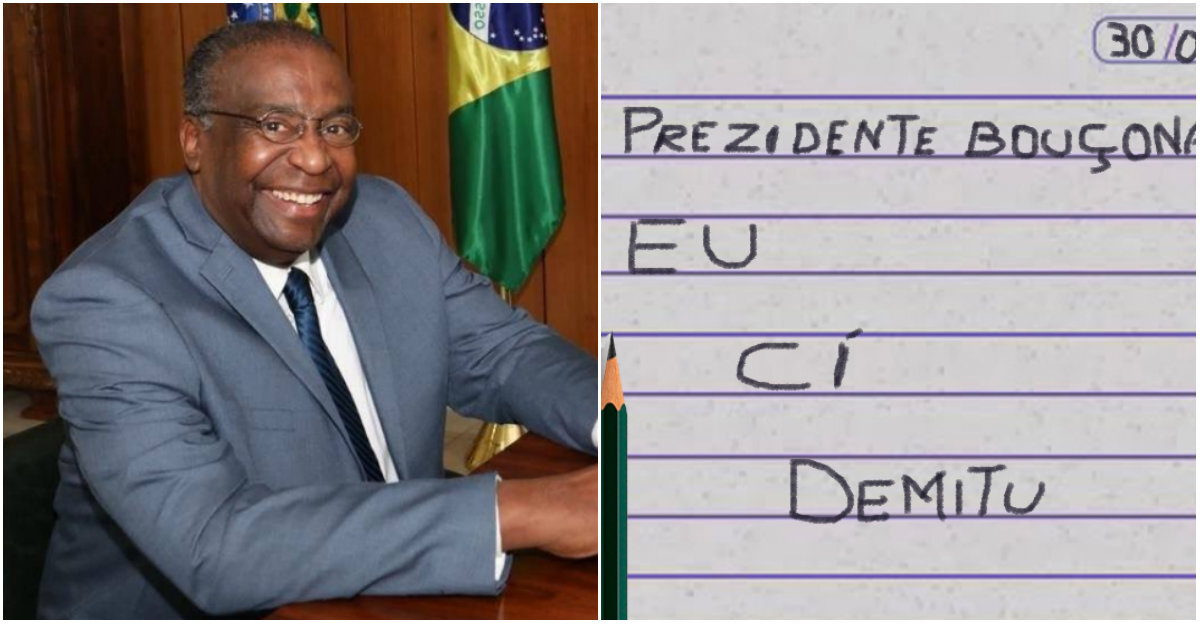 30/0
PREZIDENTE BOUÇONA
EU
CÍ
DEMITU